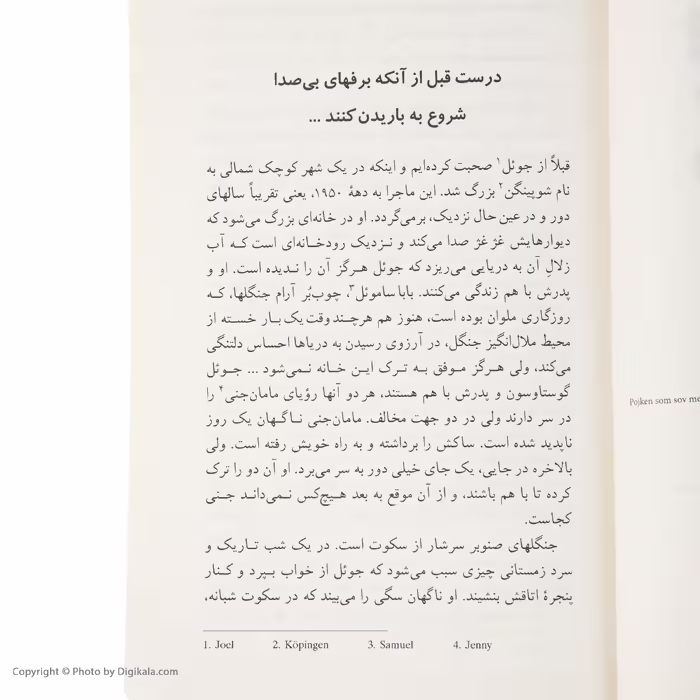 درست قبل از آنکه برفهای بی‌صدا
شروع به باریدن کنند ...
قبلاً از جوئل۱ صحبت کرده‌ایم و اینکه در یک شهر کوچک شمالی به
نام شوپینگن۲ بزرگ شد. این ماجرا به دههٔ ۱۹۵۰، یعنی تقریباً سالهای
دور و در عین حال نزدیک، برمی‌گردد. او در خانه‌ای بزرگ می‌شود که
دیوارهایش غژ غژ صدا می‌کند و نزدیک رودخانه‌ای است که آب
زلالِ آن به دریایی می‌ریزد که جوئل هرگز آن را ندیده است. او و
پدرش با هم زندگی می‌کنند. بابا ساموئل۳، چوب‌بُر آرام جنگلها، که
روزگاری ملوان بوده است، هنوز هم هرچند وقت یک بار خسته از
محیط ملال‌انگیز جنگل، در آرزوی رسیدن به دریاها احساس دلتنگی
می‌کند، ولی هرگز موفق به ترک این خانه نمی‌شود ... جوئل
گوستاوسون و پدرش با هم هستند، هر دو آنها رؤیای مامان‌جنی۴ را
در سر دارند ولی در دو جهت مخالف. مامان‌جنی ناگهان یک روز
ناپدید شده است. ساکش را برداشته و به راه خویش رفته است. ولی
بالاخره در جایی، یک جای خیلی دور به سر می‌برد. او آن دو را ترک
کرده تا با هم باشند، و از آن موقع به بعد هیچ‌کس نمی‌داند جنی
کجاست.
جنگلهای صنوبر سرشار از سکوت است. در یک شب تاریک و
سرد زمستانی چیزی سبب می‌شود که جوئل از خواب بپرد و کنار
پنجرهٔ اتاقش بنشیند. او ناگهان سگی را می‌بیند که در سکوت شبانه،
1. Joel 2. Köpingen 3. Samuel 4. Jenny
Pojken som sov me
Copyright © Photo by Digikala.com